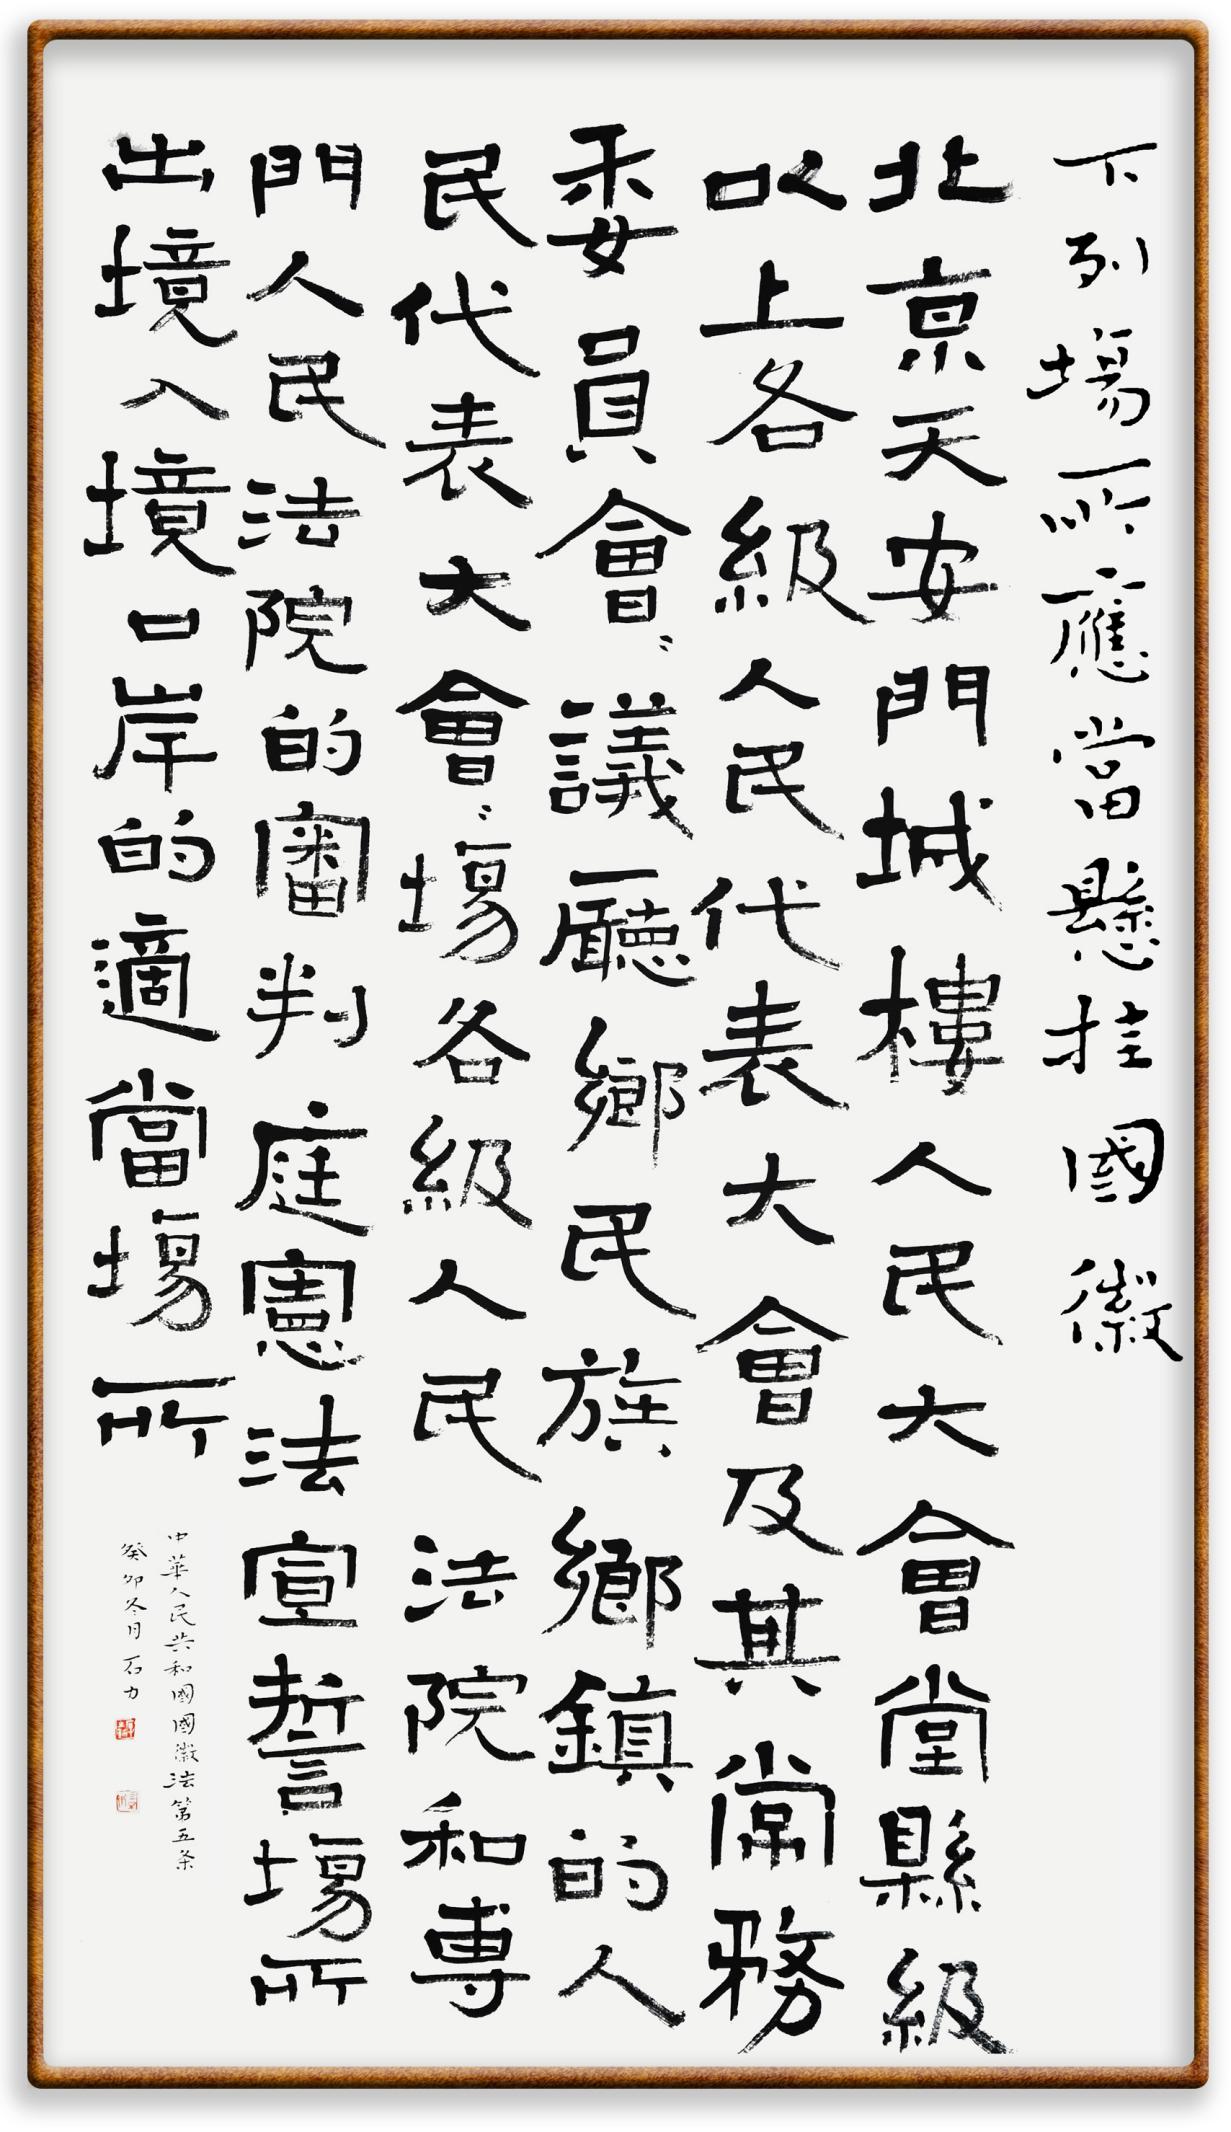 下列場所應當懸挂國徽
北京天安門城樓人民大會堂縣級
以上各級人民代表大會及其常務
委員會〻議廳鄉民族鄉鎮的人
民代表大會〻場各級人民法院和專
門人民法院的審判庭憲法宣誓場所
出境入境口岸的適當場所
中華人民共和國國徽法第五条
癸卯冬月石力